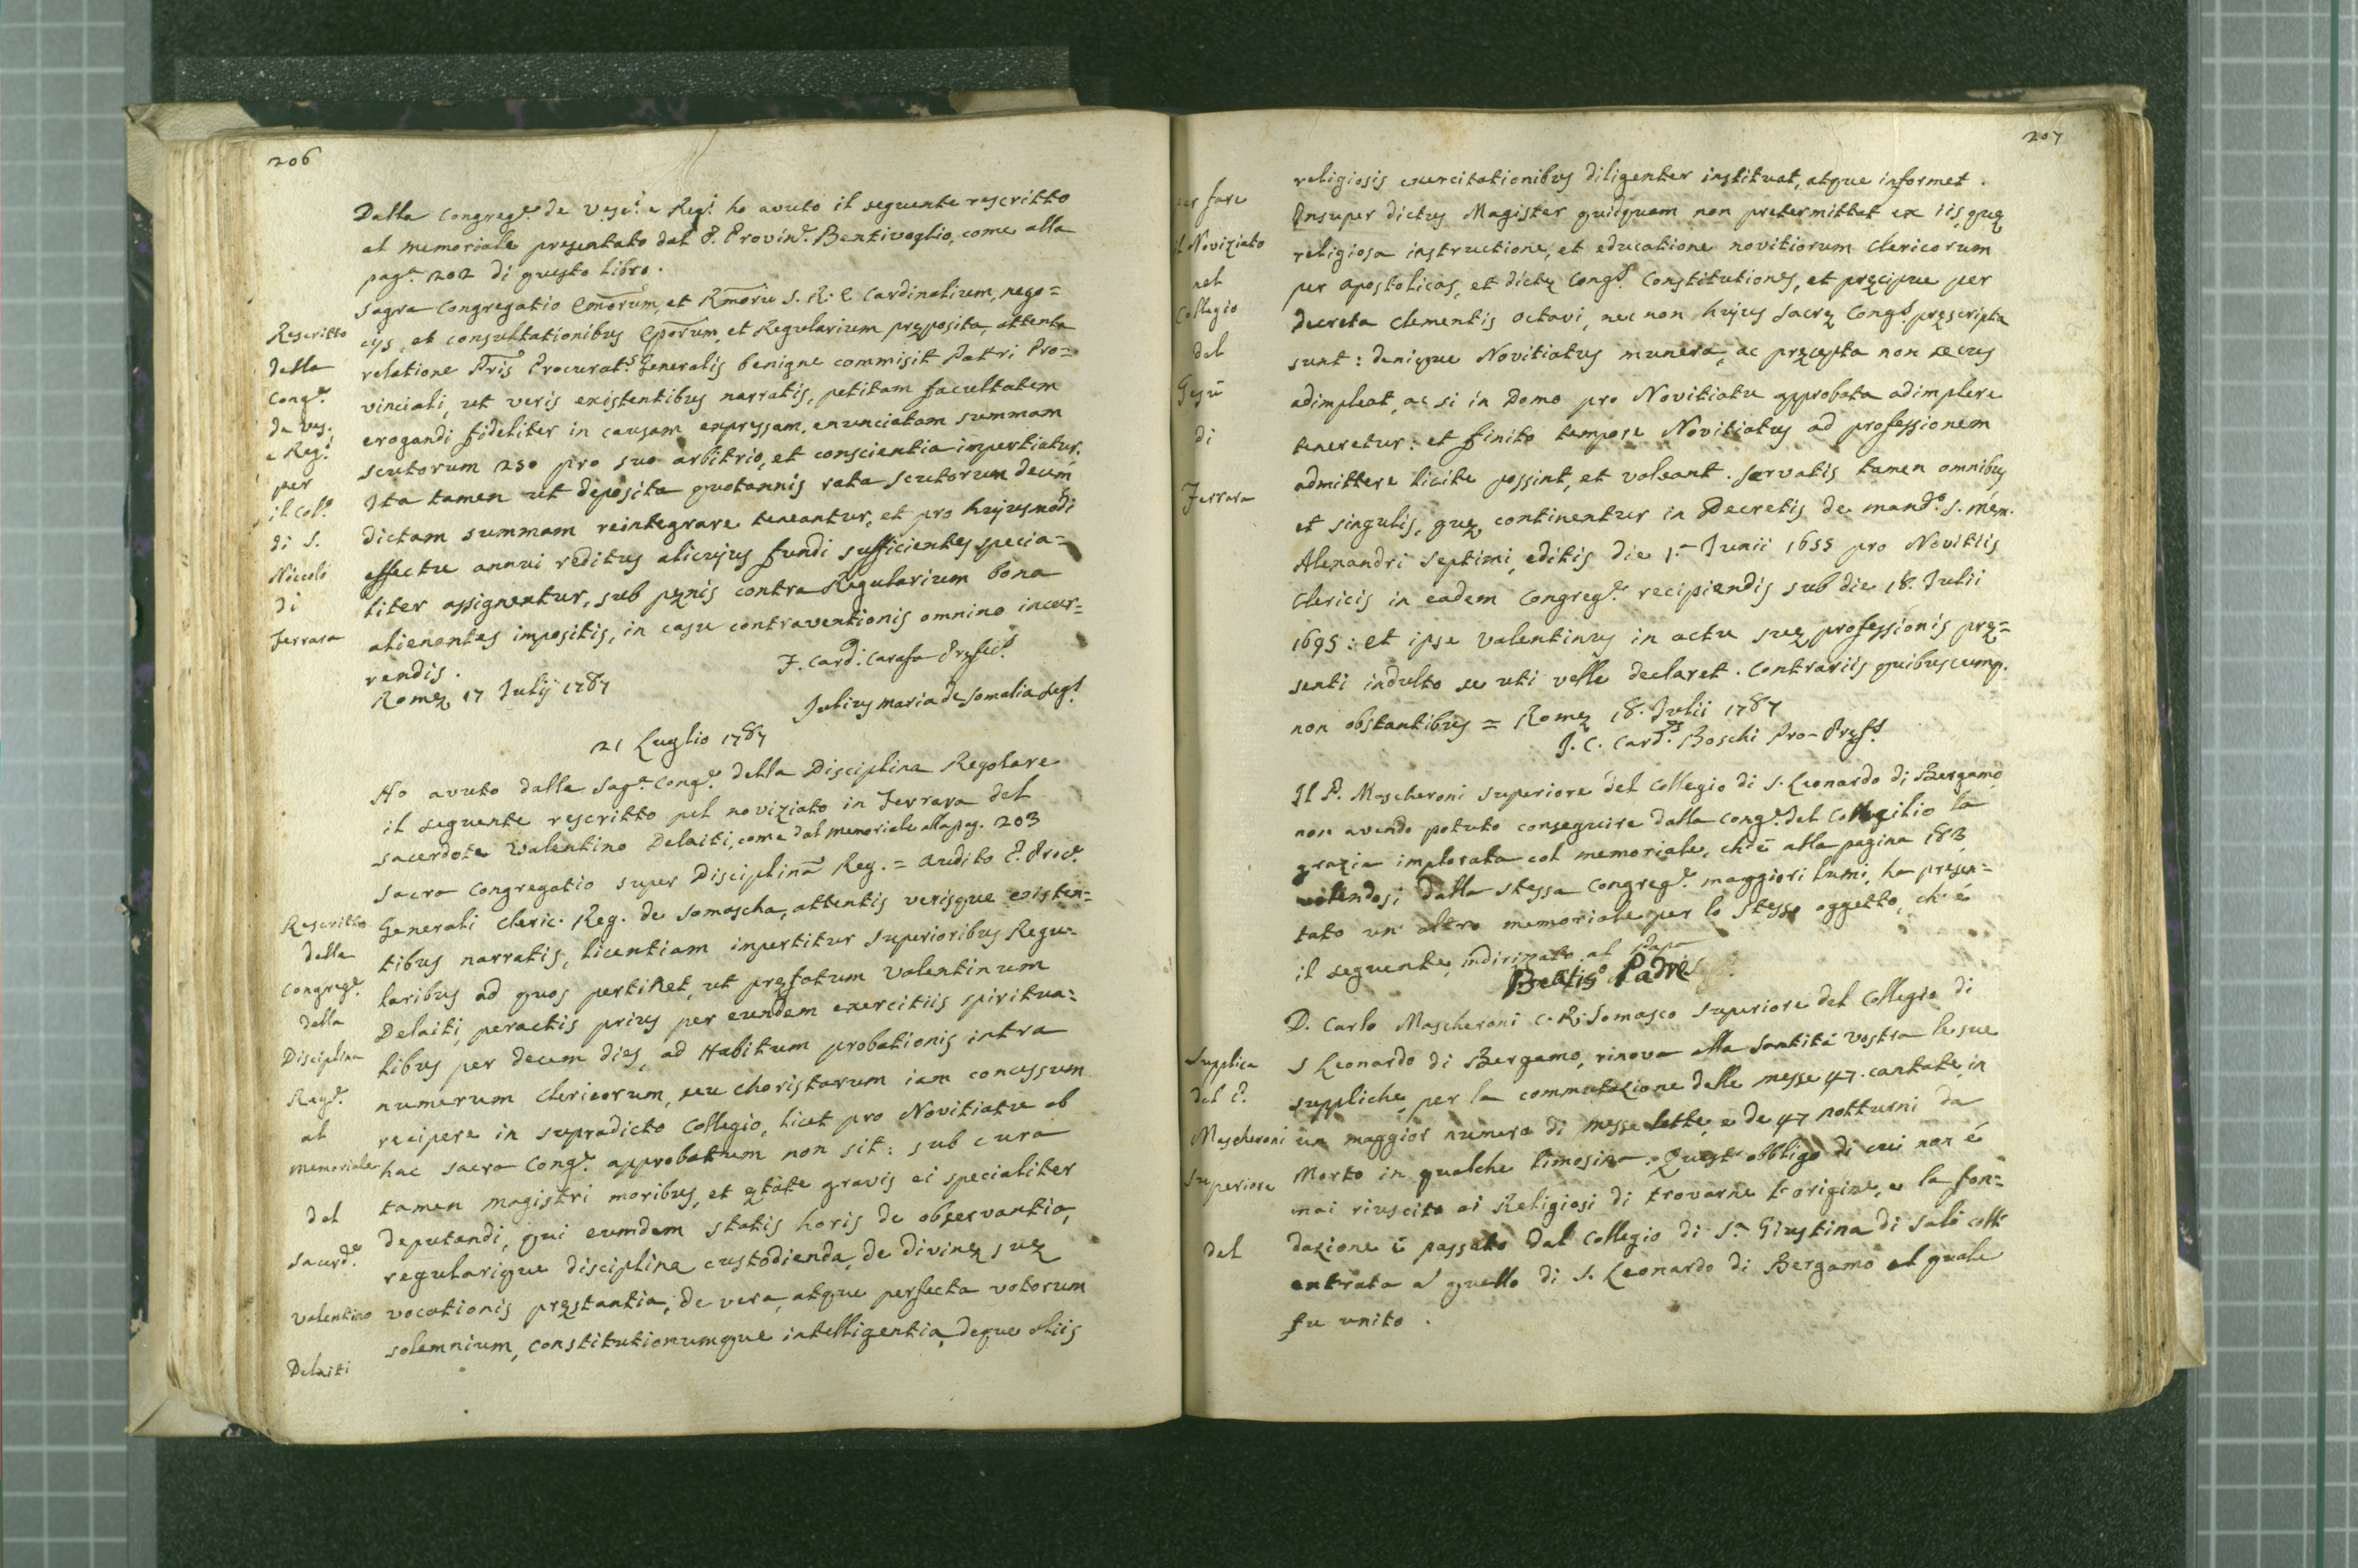 206
Dalla Congreg.e de Vesc.i e Reg.i ho avuto il seguente rescritto
al memoriale presentato dal P. Provin.le Bentivoglio, come alla
pag.a 202 di questo libro.
Rescritto
della
Cong.e
de Ves.
e Reg.i
per
il Col.o
di S.
Niccolò
di
Ferrara
Sagra Congregatio Emorum, et Rmorũ S. R. E. Cardinalium, nego=
cijs, et consultationibus Eporum, et Regularium pręposita, attenta
relatione Pris Procurat.s Generalis benigne commisit Patri Pro=
vinciali, ut veris existentibus narratis, petitam facultatem
erogandi fideliter in causam expressam, enunciatam summam
scutorum 250 pro suo arbitrio, et conscientia impertiatur.
Ita tamen ut deposita quotannis rata scutorum decem
dictam summam reintegrare teneantur, et pro hujusmodi
effectu annui reditus alicujus fundi sufficientes specia=
liter assignentur, sub pęnis contra Regularium bona
alienantes impositis, in casu contraventionis omnino incur=
rendis.
Romę 17 Julij 1787
F. Card. Carafa Pręfec.s
Julius Maria de Somalia Seg.s
21 Luglio 1787
Ho avuto dalla Sag.a Cong.e della Disciplina Regolare
il seguente rescritto pel noviziato in Ferrara del
sacerdote Valentino Delaiti, come dal memoriale alla pag. 203
Rescritto
della
Congreg.e
della
Disciplina
Reg.e
al
memoriale
del
Sacerd.e
Valentino
Delaiti
Sacra Congregatio super Disciplinã Reg. = Audito P. Proc.e
Generali Cleric. Reg. de Somascha, attentis verisque existen=
tibus narratis, licentiam impertitur Superioribus Regu=
laribus ad quos pertinet, ut pręfatum Valentinum
Delaiti, peractis prius per eundem exercitiis spiritua=
libus per decem dies, ad Habitum probationis intra
numerum Clericorum, seu Choristarum iam concessum
recipere in supradicto Collegio, licet pro Novitiatu ab
hac Sacra Cong.e approbatum non sit: sub cura
tamen magistri moribus, et ętate gravis ei specialiter
deputandi, qui eumdem statis horis de observantia,
regularique disciplina custodienda, de divinę suę
vocationis pręstantia, de vera, atque perfecta votorum
solemnium, constitutionumque intelligentia, deque aliis
207
per fare
il Noviziato
nel
Collegio
del
Gesù
di
Ferrara
religiosis exercitationibus diligenter instituat, atque informet.
Insuper dictus Magister quidquam non pretermittet ex iis, quę
religiosa instructione, et educatione novitiorum Clericorum
per Apostolicas, et dictę Cong.s Constitutiones, et pręcipue per
decreta Clementis Octavi, nec non hujus Sacrę Cong.s pręscripta
sunt: denique Novitiatus munera, ac pręcepta non secus
adimpleat, ac si in Domo pro Novitiatu approbata adimplere
teneretur: et finito tempore Novitiatus ad professionem
admittere licite possint, et valeant. Servatis tamen omnibus
et singulis, quę continentur in Decretis de mand.o S. mem.
Alexandri Septimi, editis die 1.a Junii 1655 pro Novitiis
Clericis in eadem Congreg.e recipiendis sub die 18. Julii
1695: et ipse Valentinus in actu suę professionis prę=
senti indulto se uti velle declaret. Contrariis quibuscumq.
non obstantibus = Romę 18. Julii 1787
J. C. Card.s Boschi Pro-Pręf.s
Il P. Mascheroni Superiore del Collegio di S. Leonardo di Bergamo
non avendo potuto conseguire dalla Cong.e del Concilio la
grazia implorata col memoriale, ch'è alla pagina 183
volendosi dalla stessa Congreg.e maggiori lumi, ha presen=
tato un' altro memoriale per lo stesso oggetto, ch'è
il seguente, indirizzato al Papa
Beatis.o Padre
Supplica
del P.
Mascheroni
Superiore
del
D. Carlo Mascheroni C. R. Somasco Superiore del Collegio di
S Leonardo di Bergamo, rinova alla Santità Vostra le sue
suppliche, per la commutazione delle messe 47. cantate, in
un maggior numero di messe lette, e de 47 notturni da
Morto in qualche limosina. Quest' obbligo di cui non è
mai riuscito ai Religiosi di trovarne l'origine, e la fon=
dazione è passato dal Collegio di S.a Giustina di Salò coll'
entrata a quello di S. Leonardo di Bergamo al quale
fu unito.